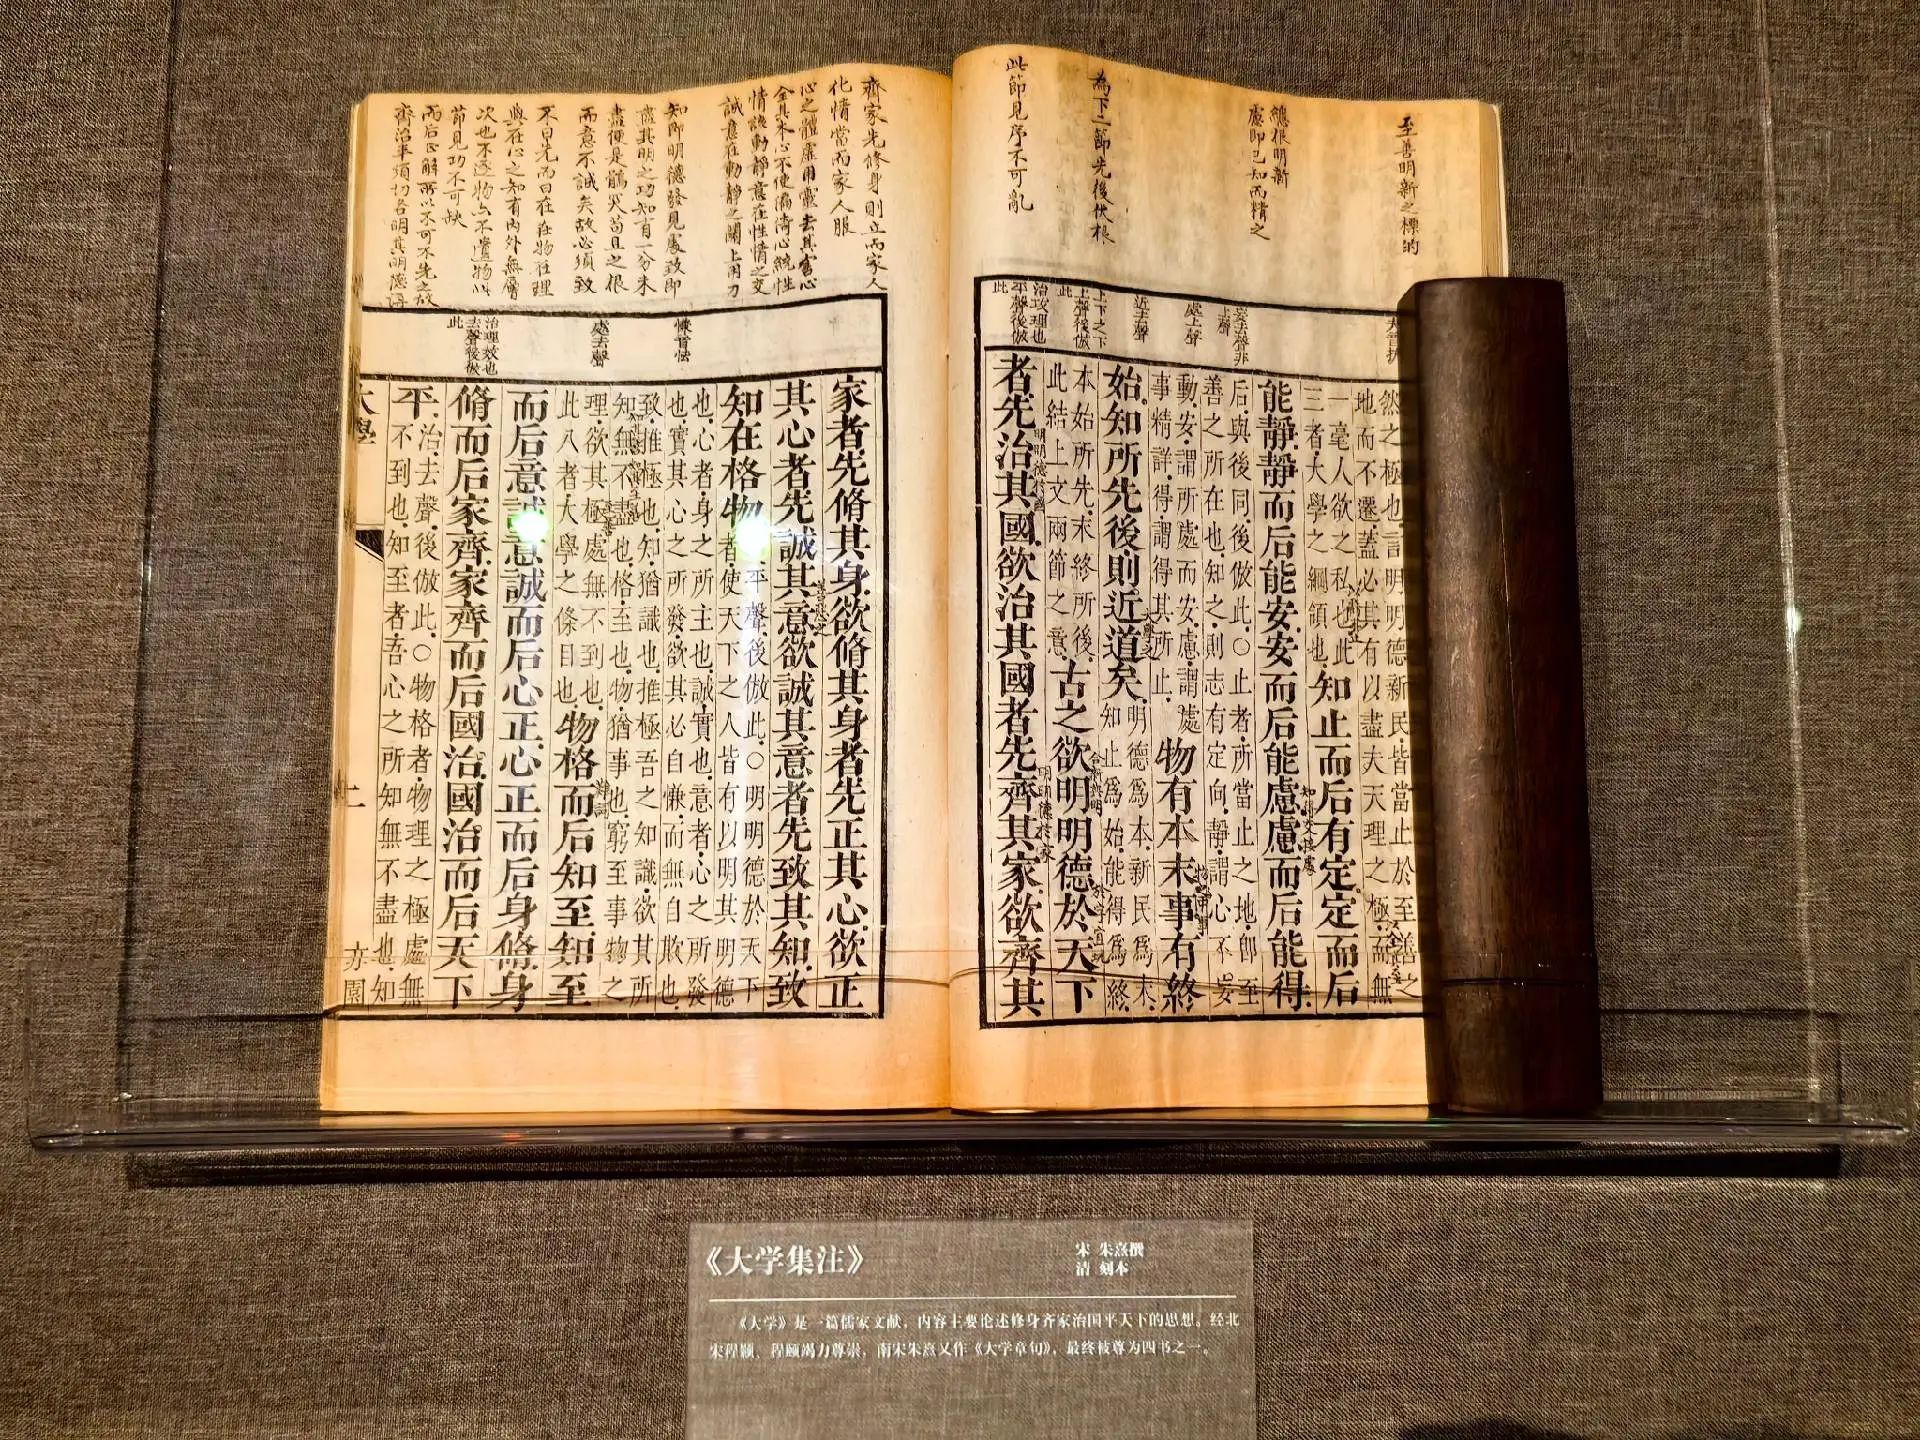 至善明新之標的
總根明新
慮即已知而精之
為下二節先後伏根
此節見序不可亂
妄去聲非
上聲
處上聲
近去聲
上下之下
上聲後倣
此
治攻理也
平聲後倣
此
然之極也言明明德新民皆當止於至善之
地而不遷蓋必其有以盡夫天理之極而無
一毫人欲之私也此
三者大學之綱領也知止而后有定定而后
能靜靜而后能安安而后能慮慮而后能得
后與後同後倣此○止者所當止之地即至
善之所在也知之則志有定向靜謂心不妄
動安謂所處而安慮謂處
事精詳得謂得其所止物有本末事有終
始知所先後則近道矣明德為本新民為末
知止為始能得為終
本始所先末終所後
此結上文兩節之意古之欲明明德於天下
者先治其國欲治其國者先齊其家欲齊其
齊家先修身則立而家人
化情當而家人服
心之體虛用靈去其害心
全其本心不使
情該動靜意在性情之交
誠意在動靜之關上用力
知即明德發見處致即
盡其明之功知有一分未
盡便是苟且之根
而意不誠矣故必須致
不曰先而曰在在物在理
與在心之知有內外無層
次也不逐物亦不遺物此
節見功不可缺
而后正解所以不可不先之故
齊治平須切各明其明德
慊音愜
處去聲
治理效也
去聲後倣
此
家者先脩其身欲脩其身者先正其心欲正
其心者先誠其意欲誠其意者先致其知致
知在格物
平聲後倣此○明明德於天下
者使天下之人皆有以明其明德
也心者身之所主也誠實也意者心之所發
也實其心之所發欲其必自慊而無自欺也
致推極也知猶識也推極吾之知識欲其所
知無不盡也格至也物猶事也窮至事物之
理欲其極處無不到也
此八者大學之條目也物格而后知至知至
而后意誠意誠而后心正心正而后身脩身
脩而后家齊家齊而后國治國治而后天下
平治去聲後倣此○物格者物理之極處無
不到也知至者吾心之所知無不盡也知
大學
二
亦園
《大学集注》
宋 朱熹撰
清 刻本
《大学》是一篇儒家文献，内容主要论述修身齐家治国平天下的思想。经北
宋程颢、程颐竭力尊崇，南宋朱熹又作《大学章句》，最终被尊为四书之一。